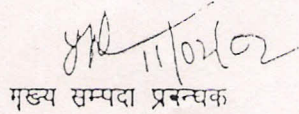 11/02/02
मुख्य सम्पदा प्रबन्धक